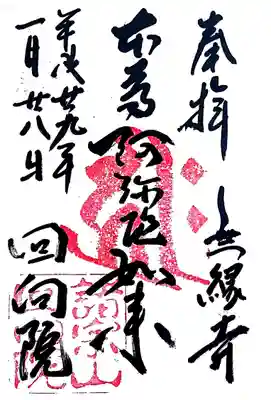 奉拝 無縁寺
本尊 阿弥陀如来
回向院
平成廿九年
一月廿八日